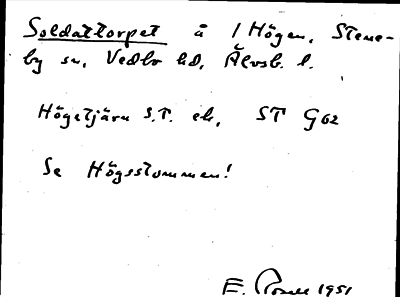 Soldattorpet å 1 Högen, Stene-
by sn, Vedbo hd, Älvsb. l.
Högetjärn S.T. ek, ST G62
Se Högsstommen!
E. 1951